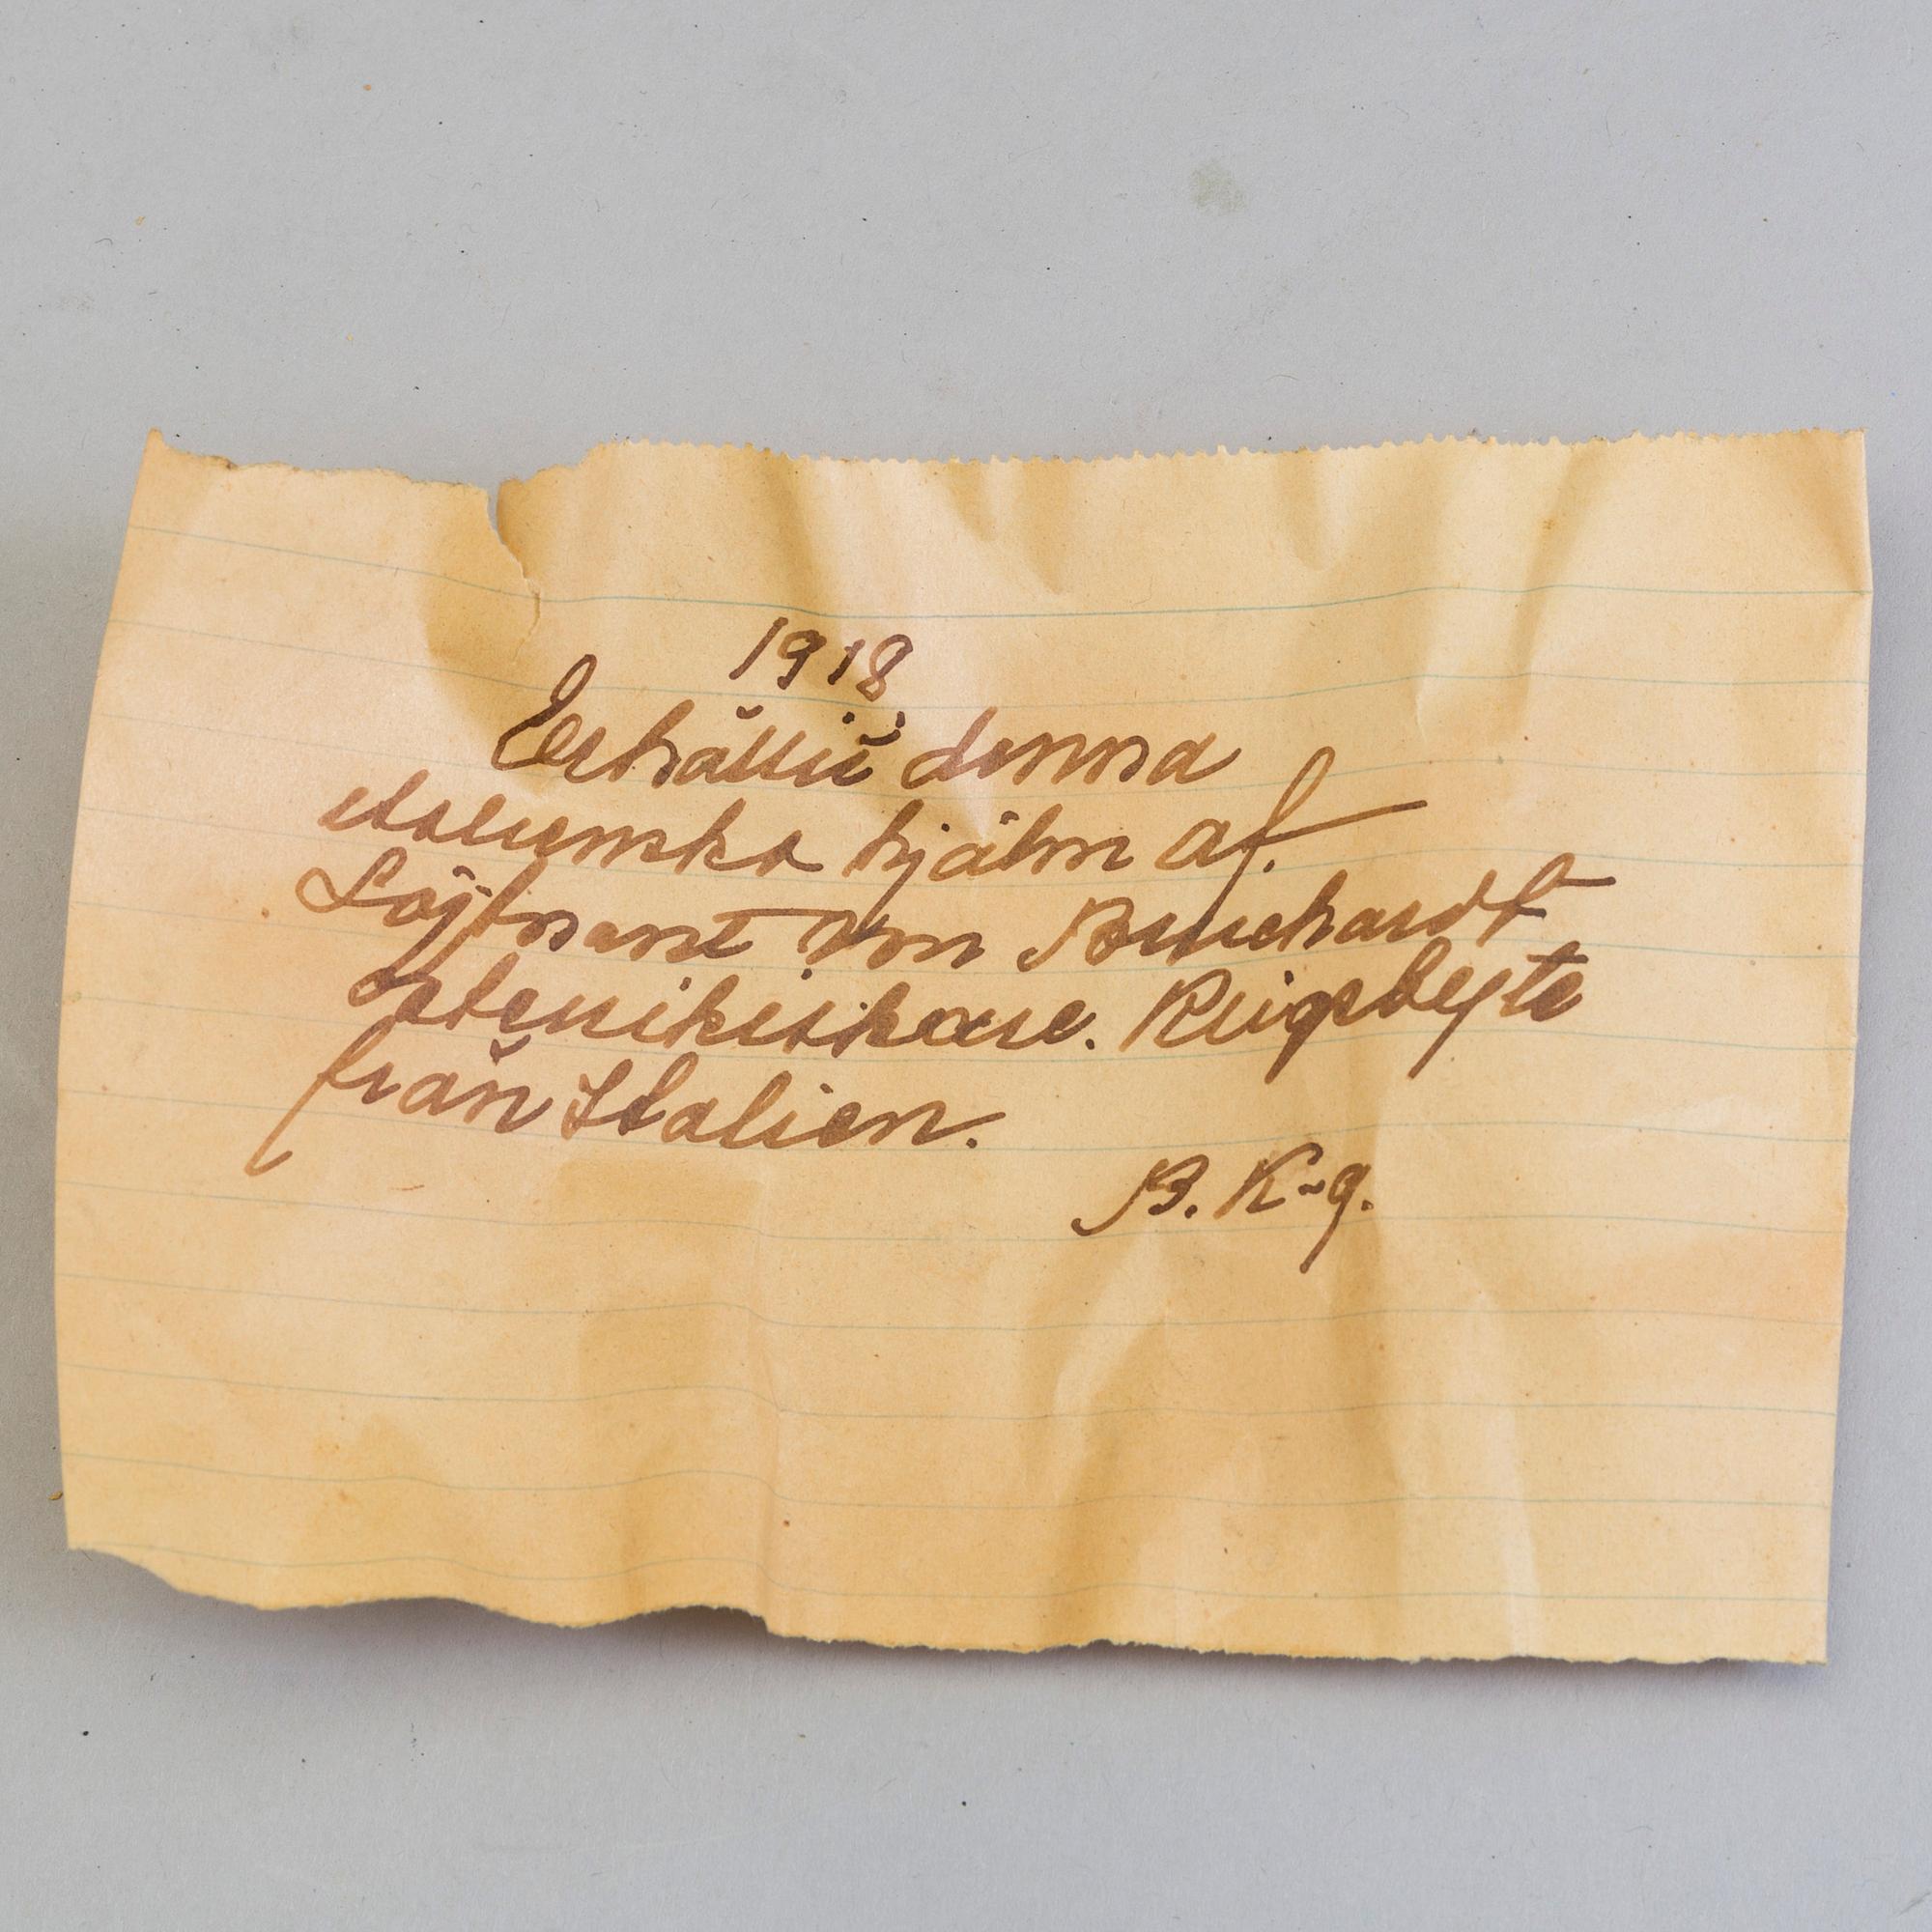 1918
Erhållit denna
italienska hjälm af.
Löjtnant von Burchardt
österrikiskare. Krigsbyte
från Italien.
B. K-g.